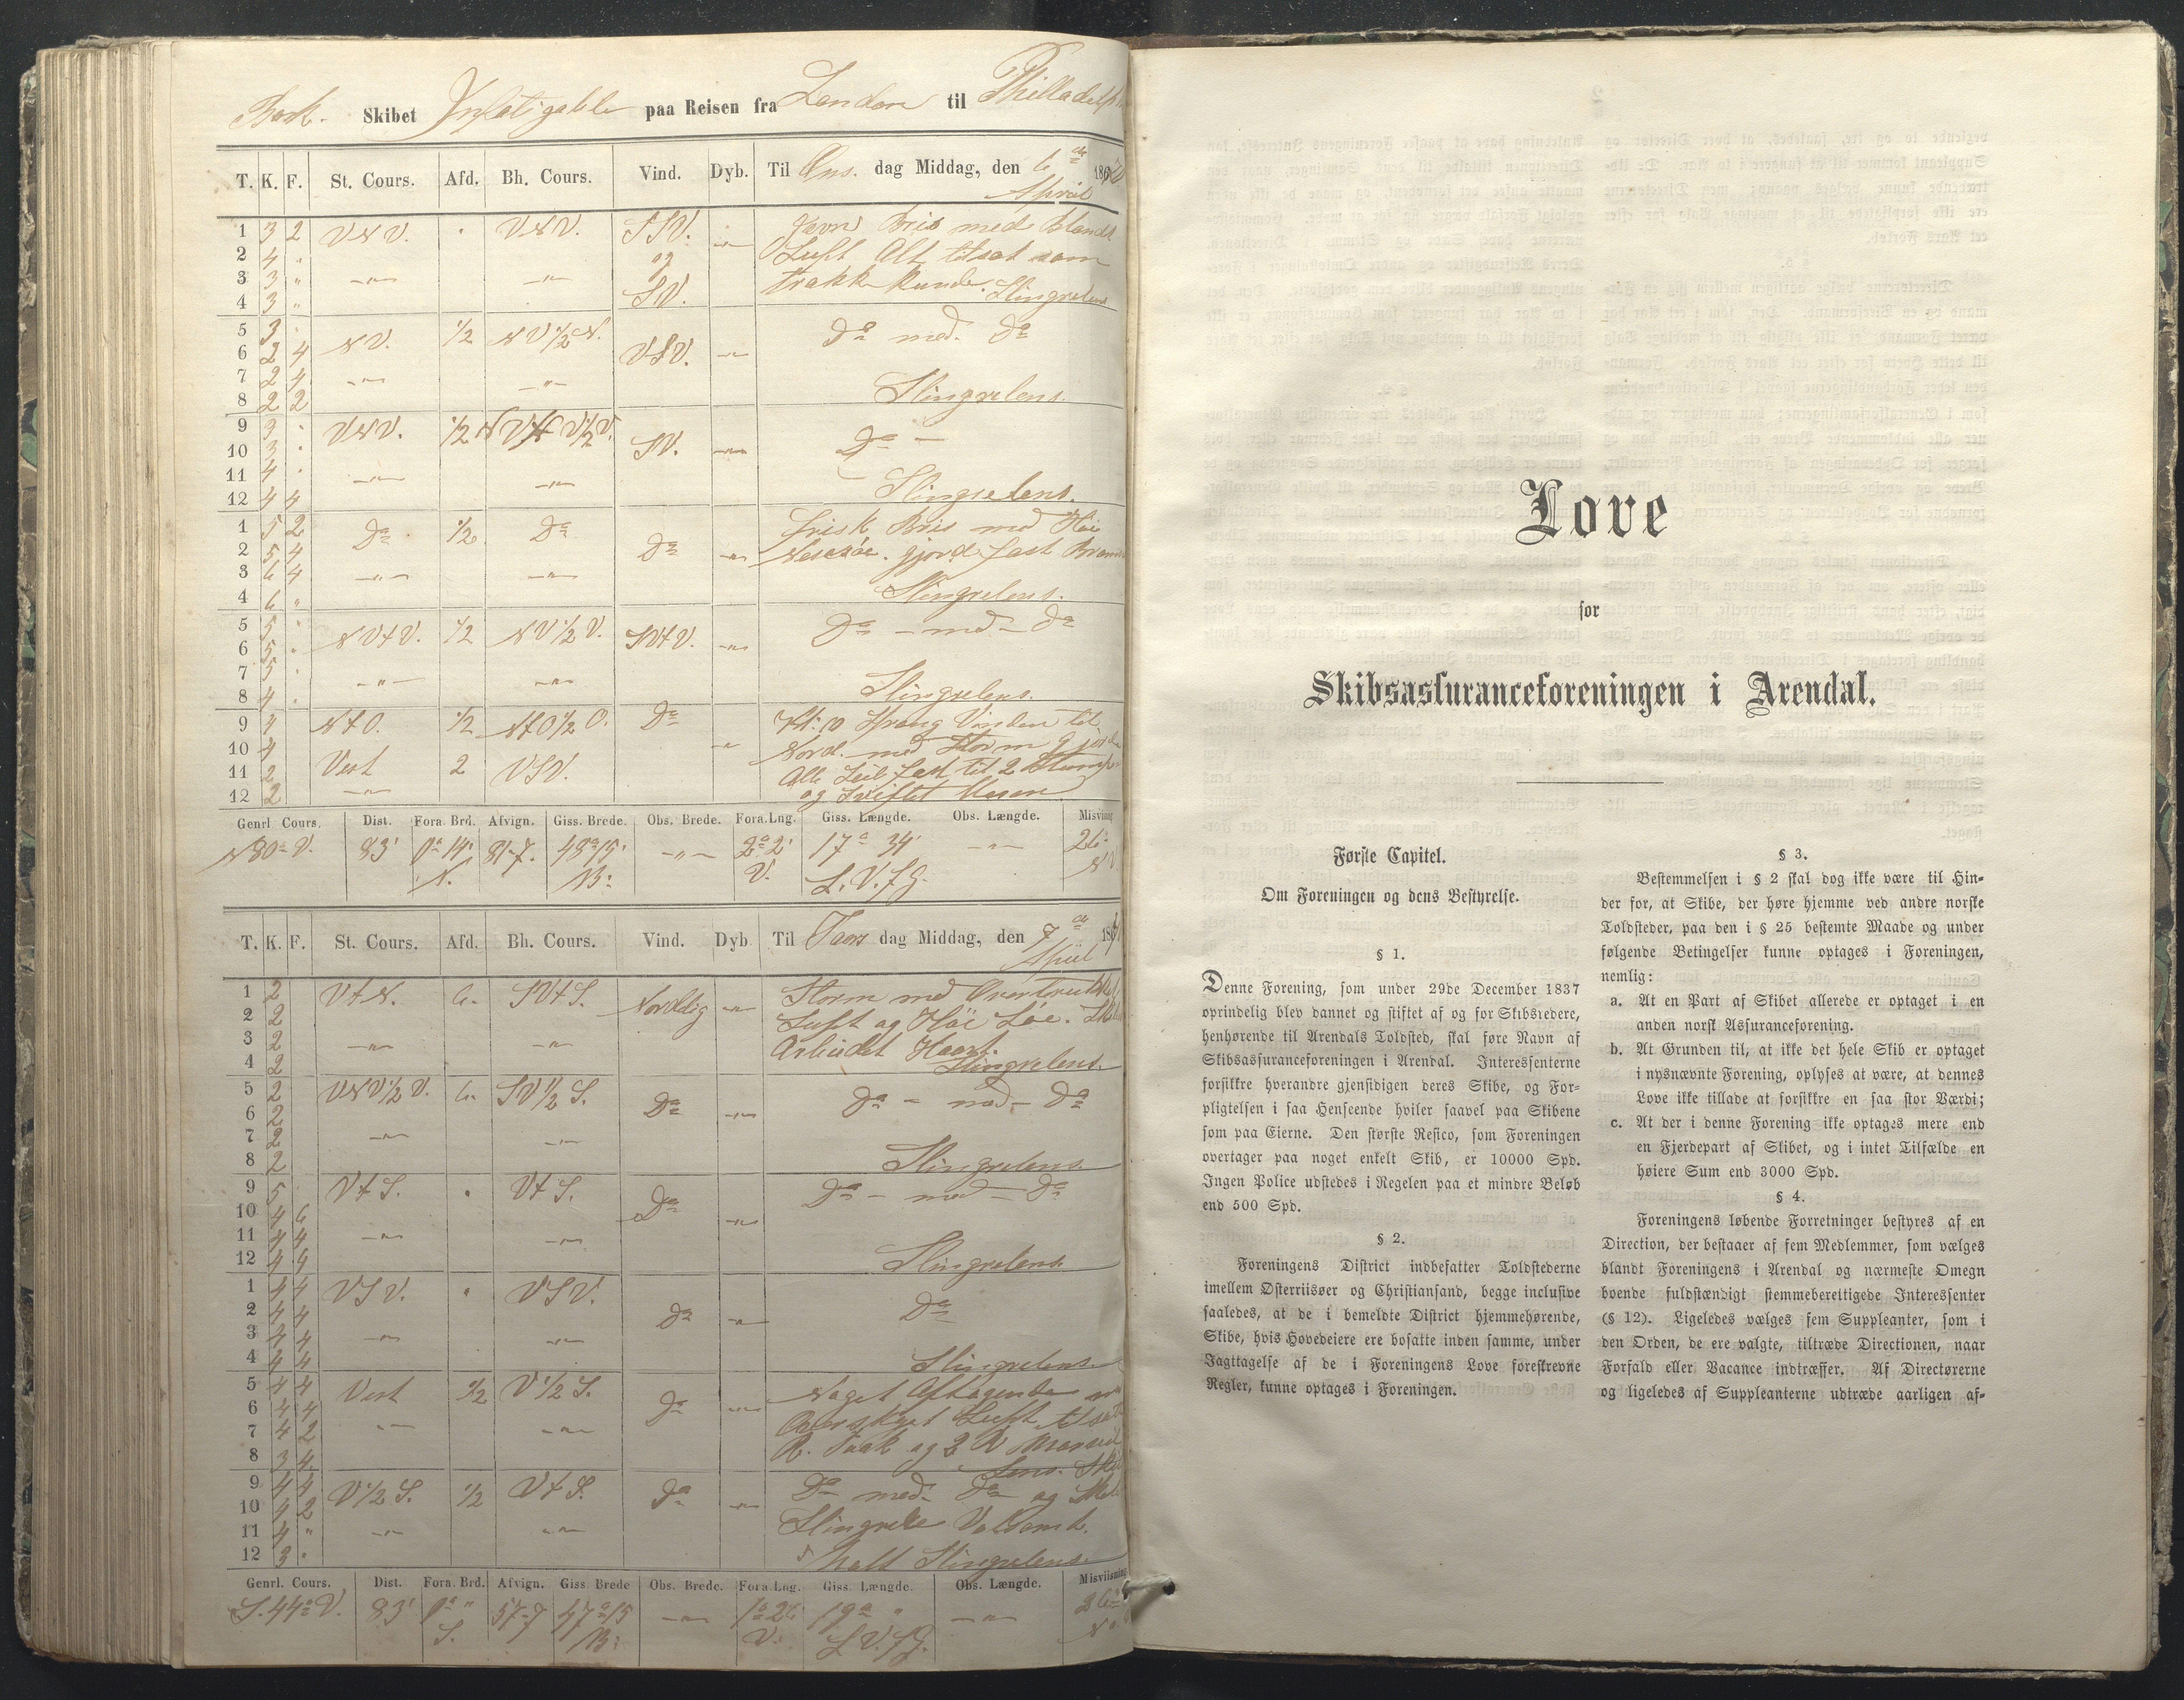 Bark. Skibet Infatigable paa Reisen fra London til Philladelphia
T. K. F. St. Cours. Afd. Bh. Cours. Vind. Dyb. Til Ons. dag Middag, den 6de April 187
1 3 2 VNV. " VNV. SSV. Jevn Bris med Blandt
2 4 " og Luft Alt tilsat som
3 3 " SV. trække kunde. Slingrelens
4 3 "
5 3 NV. 1/2 NV 1/2 N. VSV. Do med Do
6 2 4
7 2 4
8 2 2 Slingrelens.
9 3 VNV. 1/2 SV. Do
10 3
11 4
12 4 4 Slingrelens.
1 5 2 Do 1/2 Do Do frisk Bris med Høi
2 5 4 gjord fast
3 6 4
4 6 " Slingrelens.
5 5 " NVtV. 1/2 NV 1/2 V. SVtV. Do med Do
6 5
7 5
8 4 Slingrelens.
9 4 NtO. 1/2 NtO 1/2 O. Do Kl. 10 Sprang Vinden til
10 4 Nord. med Storm gjorde
11 2 Vest 2 VSV. Alle Seil fast til 2 Stump
12 2 og Sviftet Mesan
Genrl Cours. Dist. Fora. Brd. Afvign. Giss. Brede. Obs. Brede. Fora. Lng. Giss. Længde. Obs. Længde. Misvisning
N80°V. 83' 0° 14' N. 81-7. 48° 15' B: 2° 2' V. 17° 34' L. V. f G. 26°
T. K. F. St. Cours. Afd. Bh. Cours. Vind. Dyb Til Tors dag Middag, den 7de April 187
1 2 VtN. 6. SVtS. Nordlig Storm med Overtrukket
2 2 Luft og Høi Søe.
3 2 Arbeidet Haart.
4 2 Slingrelens.
5 2 VNV 1/2 V. 6. SV 1/2 S. Do Do med Do
6 2
7 2
8 2 Slingrelens.
9 5 VtS. " VtS. Do Do med Do
10 4 6
11 4 4
12 4 4 Slingrelens.
1 4 4 VSV. " VSV. Do Do
2 4 4
3 4 4
4 4 4 Slingrelens.
5 4 4 Vest 1/2 V 1/2 S. Do Noget Aftagende
6 4 4 Overskyet Luft tilsat
7 4 2
8 3 4 Lens.
9 4 4 V 1/2 S. 1/2 VtS. Do Do med Do og
10 4 2 Slingrede Voldsomt.
11 4 "
12 3 " Halt Slingrelens.
Genrl. Cours. Dist. Fora. Brd. Afvign. Giss. Brede Obs. Brede. Fora. Lng. Giss. Længde. Obs. Længde. Misviisning
S. 44° V. 83' 57-7 47° 15 B: 1° 26 V. 19° " L V. f G.
Love
for
Skibsassuranceforeningen i Arendal.
Første Capitel.
Om Foreningen og dens Bestyrelse.
§ 1.
Denne Forening, som under 29de December 1837
oprindelig blev dannet og stiftet af og for Skibsredere,
henhørende til Arendals Toldsted, skal føre Navn af
Skibsassuranceforeningen i Arendal. Interessenterne
forsikkre hverandre gjensidigen deres Skibe, og For-
pligtelsen i saa Henseende hviler saavel paa Skibene
som paa Eierne. Den største Resico, som Foreningen
overtager paa noget enkelt Skib, er 10000 Spd.
Ingen Police udstedes i Regelen paa et mindre Beløb
end 500 Spd.
§ 2.
Foreningens District indbefatter Toldstederne
imellem Østerriisøer og Christiansand, begge inclusive
saaledes, at de i bemeldte District hjemmehørende,
Skibe, hvis Hovedeiere ere bosatte inden samme, under
Iagttagelse af de i Foreningens Love foreskrevne
Regler, kunne optages i Foreningen.
§ 3.
Bestemmelsen i § 2 skal dog ikke være til Hin-
der for, at Skibe, der høre hjemme ved andre norske
Toldsteder, paa den i § 25 bestemte Maade og under
følgende Betingelser kunne optages i Foreningen,
nemlig:
a. At en Part af Skibet allerede er optaget i en
anden norsk Assuranceforening.
b. At Grunden til, at ikke det hele Skib er optaget
i nysnævnte Forening, oplyses at være, at dennes
Love ikke tillade at forsikkre en saa stor Værdi;
c. At der i denne Forening ikke optages mere end
en Fjerdepart af Skibet, og i intet Tilfælde en
høiere Sum end 3000 Spd.
§ 4.
Foreningens løbende Forretninger bestyres af en
Direction, der bestaaer af fem Medlemmer, som vælges
blandt Foreningens i Arendal og nærmeste Omegn
boende fuldstændigt stemmeberettigede Interessenter
(§ 12). Ligeledes vælges fem Suppleanter, som i
den Orden, de ere valgte, tiltræde Directionen, naar
Forfald eller Vacance indtræffer. Af Directørerne
og ligeledes af Suppleanterne udtræde aarligen af-